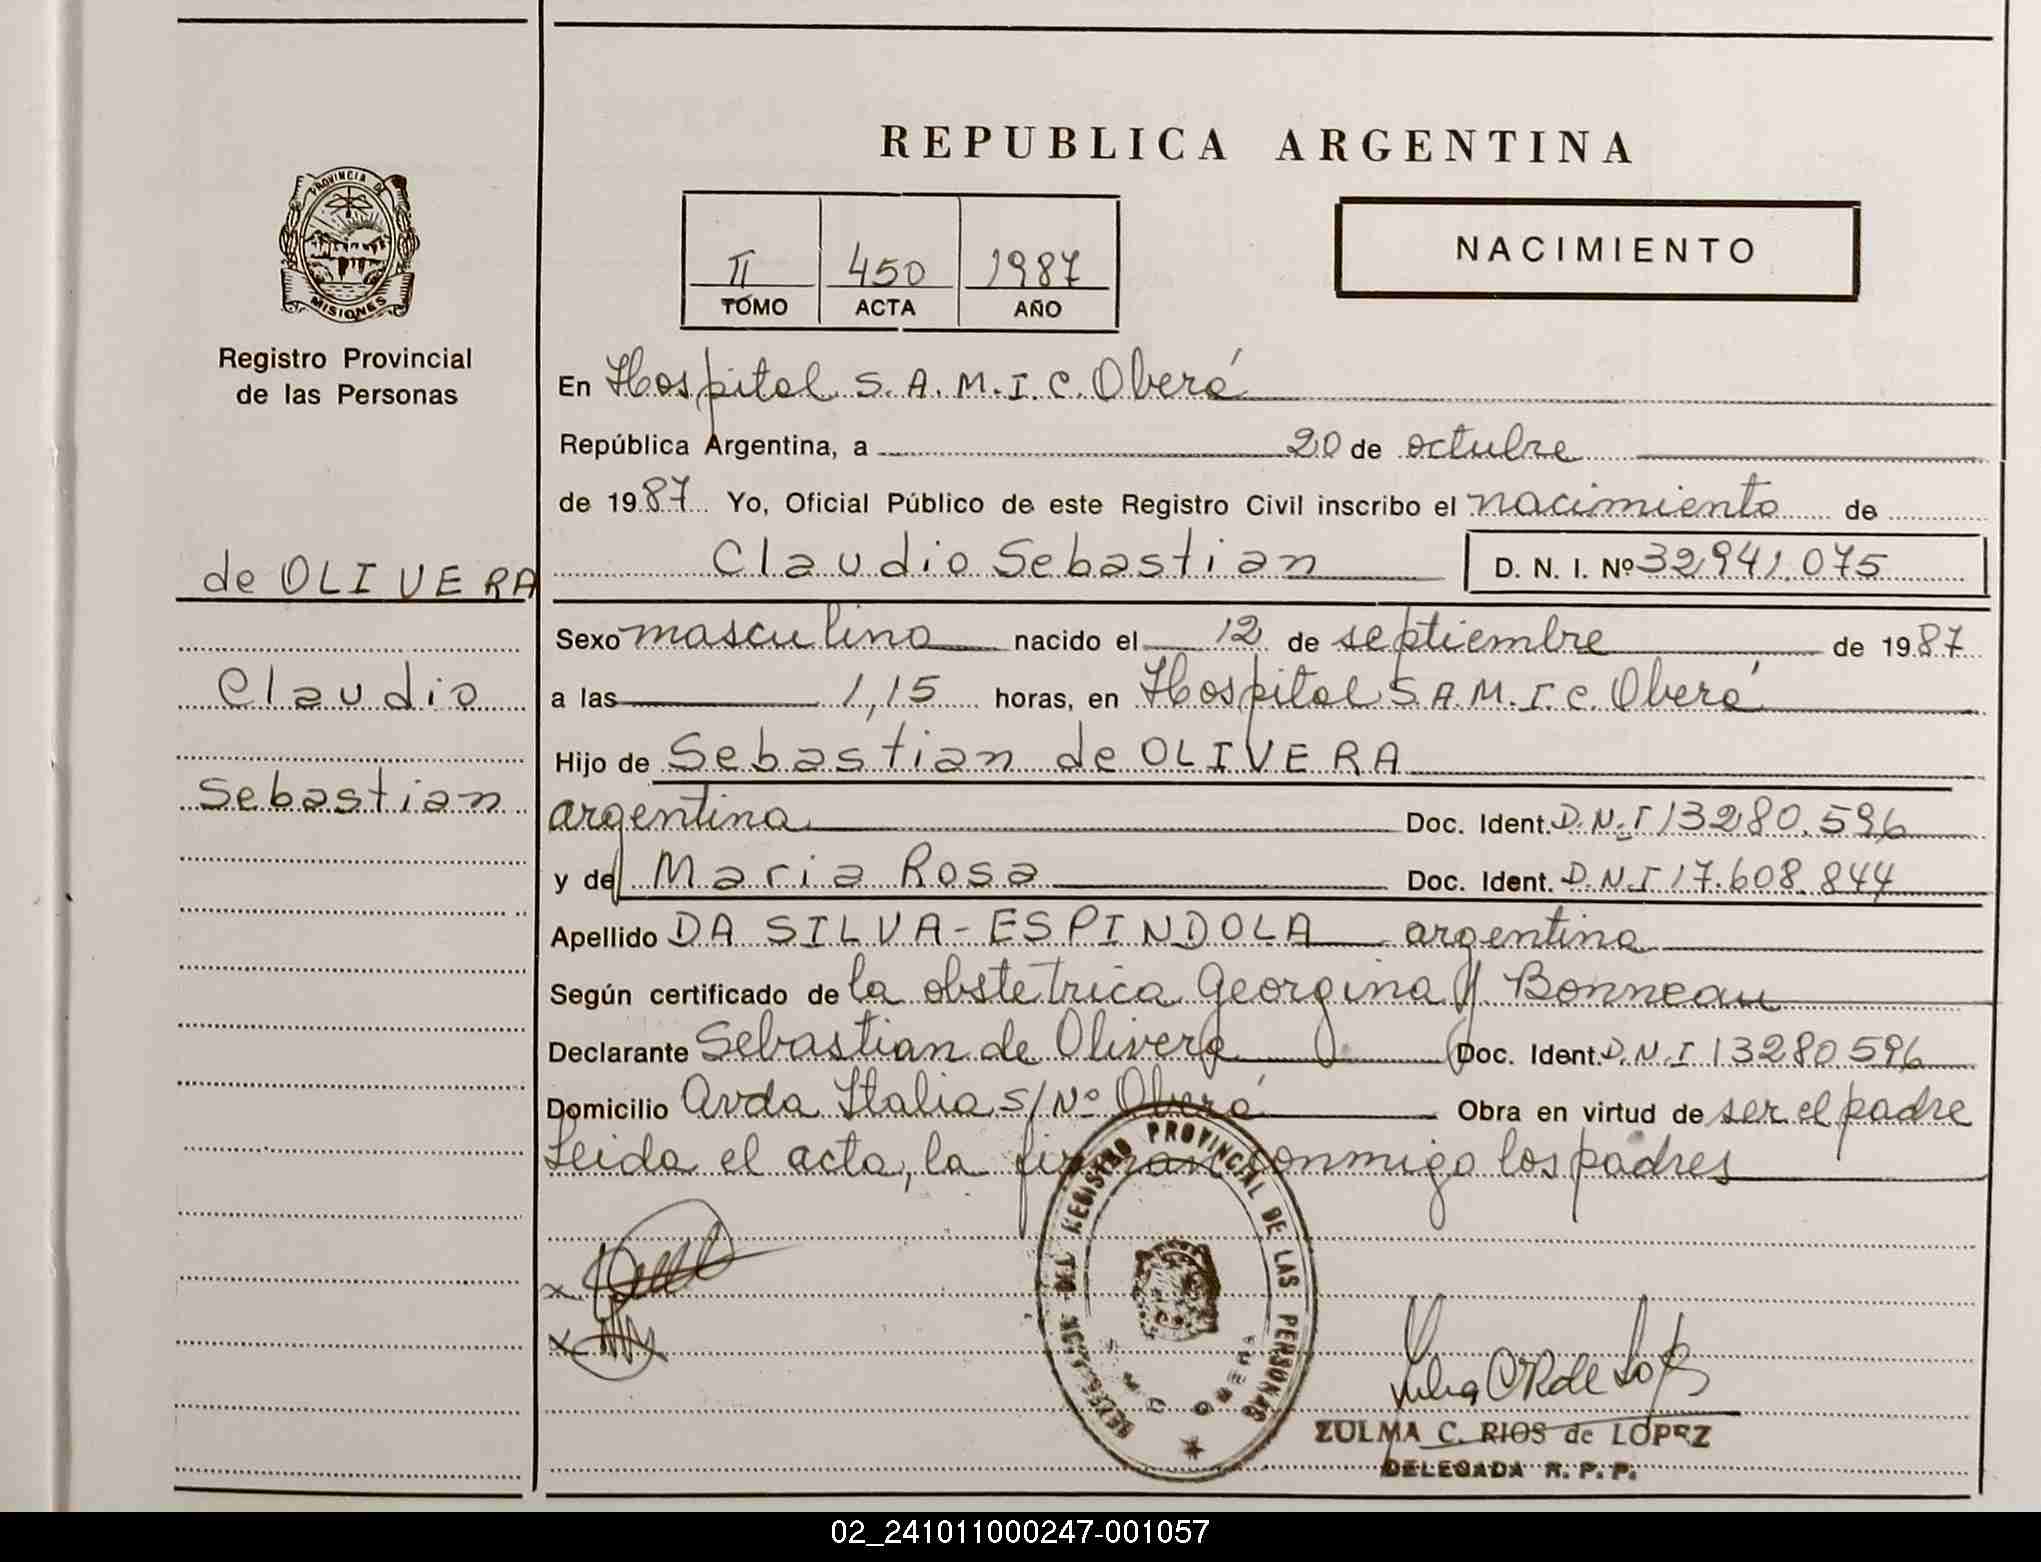 REPUBLICA ARGENTINA
PROVINCIA DE
MISIONES
Registro Provincial
de las Personas
II 450 1987
TOMO ACTA AÑO
NACIMIENTO
En Hospital S.A.M.I.C. Oberá
República Argentina, a 20 de octubre
de 1987 Yo, Oficial Público de este Registro Civil inscribo el nacimiento de
de OLIVERA
Claudio Sebastian D. N. I. Nº 32.941.075
Sexo masculino nacido el 12 de septiembre de 1987
Claudio
a las 1,15 horas, en Hospital S.A.M.I.C. Oberá
Hijo de Sebastian de OLIVERA
Sebastian
argentina Doc. Ident. D.N.I 13280.596
y de Maria Rosa Doc. Ident. D.N.I 17.608.844
Apellido DA SILVA-ESPINDOLA argentina
Según certificado de la obstetrica Georgina Bonneau
Declarante Sebastian de Olivera Doc. Ident. D.N.I 13280596
Domicilio Avda Italia S/Nº Oberá Obra en virtud de ser el padre
Leida el acta, la firman conmigo los padres
REGISTRO PROVINCIAL DE LAS PERSONAS
ZULMA C. RIOS de LOPEZ
DELEGADA R. P. P.
02_241011000247-001057